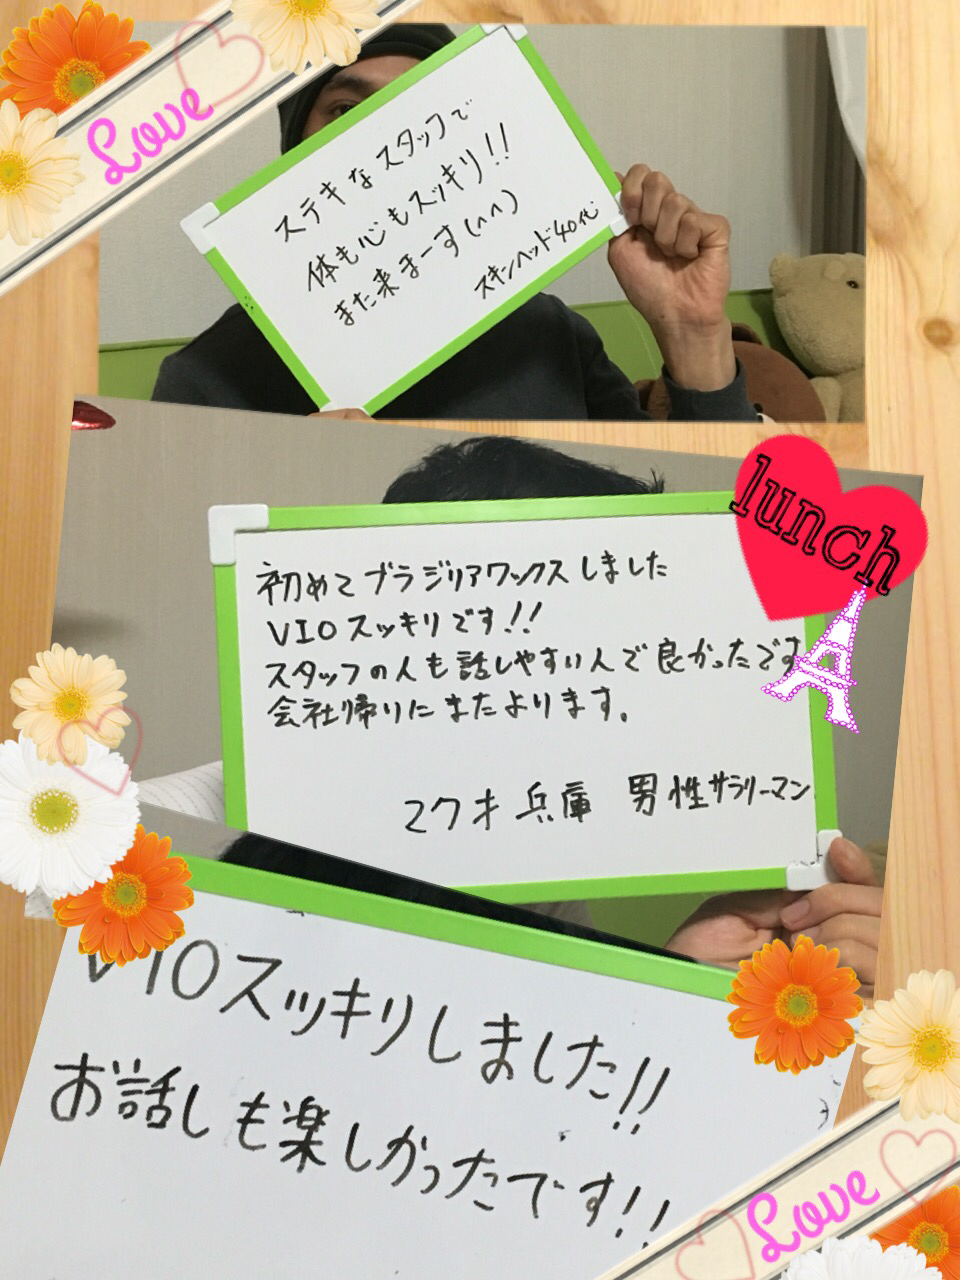 Love
ステキなスタッフで
体も心もスッキリ!!
また来まーす(^^)
スキンヘッド40代
lunch
初めてブラジリアワックスしました
VIOスッキリです!!
スタッフの人も話しやすい人で良かったです
会社帰りにまたよります。
マクオ 兵庫 男性サラリーマン
VIOスッキリしました!!
お話しも楽しかったです!!
Love